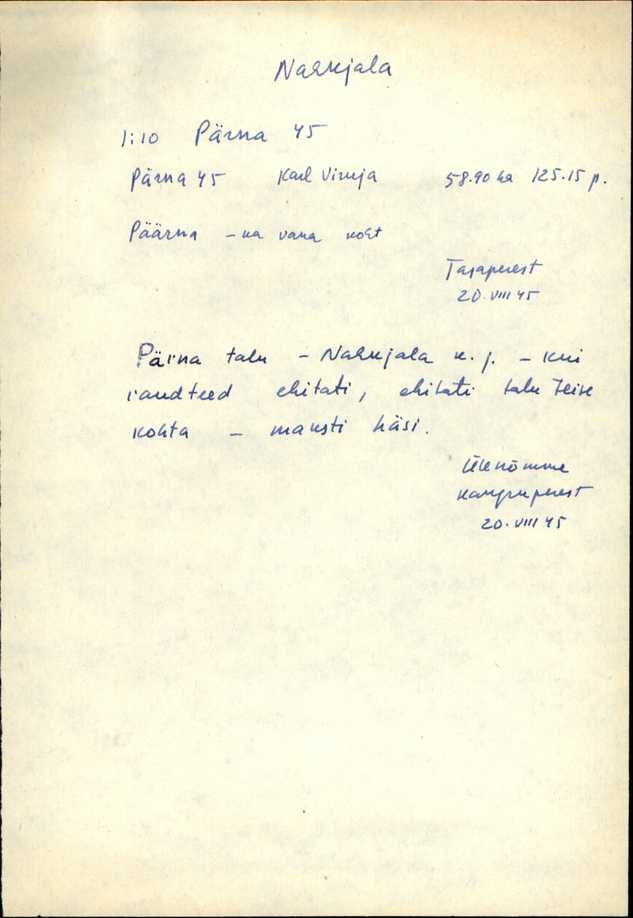 Nahkjala
1:10 Pärna 45
Pärna 45 Karl Viruja 58.90 ha 125.15 p.
Päärna – ka vana koht
Tagaperest
20.VIII 45
Pärna talu – Nahkjala k. j. – kui
raudteed ehitati, ehitati talu teise
kohta – maksti häsi.
Ülenõmme
Kangruperest
20.VIII 45